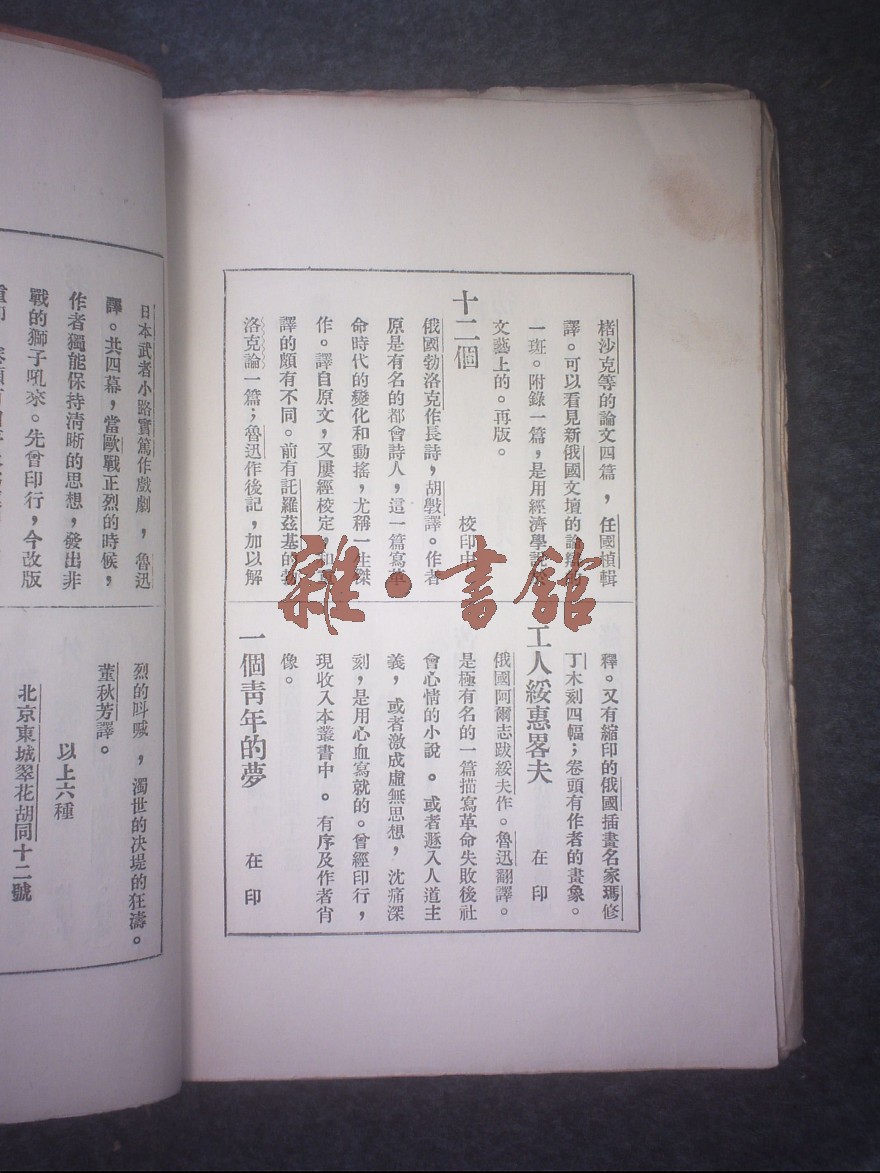 楮沙克等的論文四篇，任國楨輯
譯。可以看見新俄國文壇的論辯的
一斑。附錄一篇，是用經濟學說於
文藝上的。再版。
十二個　校印中
俄國勃洛克作長詩，胡斅譯。作者
原是有名的都會詩人，這一篇寫革
命時代的變化和動搖，尤稱一生傑
作。譯自原文，又屢經校定，和重
譯的頗有不同。前有託羅茲基的勃
洛克論一篇；魯迅作後記，加以解
釋。又有縮印的俄國插畫名家瑪修
丁木刻四幅；卷頭有作者的畫象。
工人綏惠畧夫　在印
俄國阿爾志跋綏夫作。魯迅翻譯。
是極有名的一篇描寫革命失敗後社
會心情的小說。或者遯入人道主
義，或者激成虛無思想，沈痛深
刻，是用心血寫就的。曾經印行，
現收入本叢書中。有序及作者肖
像。
一個靑年的夢　在印
日本武者小路實篤作戲劇，魯迅
譯。共四幕，當歐戰正烈的時候，
作者獨能保持淸晰的思想，發出非
戰的獅子吼來。先曾印行，今改版
烈的吶喊，濁世的決堤的狂濤。
董秋芳譯。
以上六種
北京東城翠花胡同十二號
雜·書館